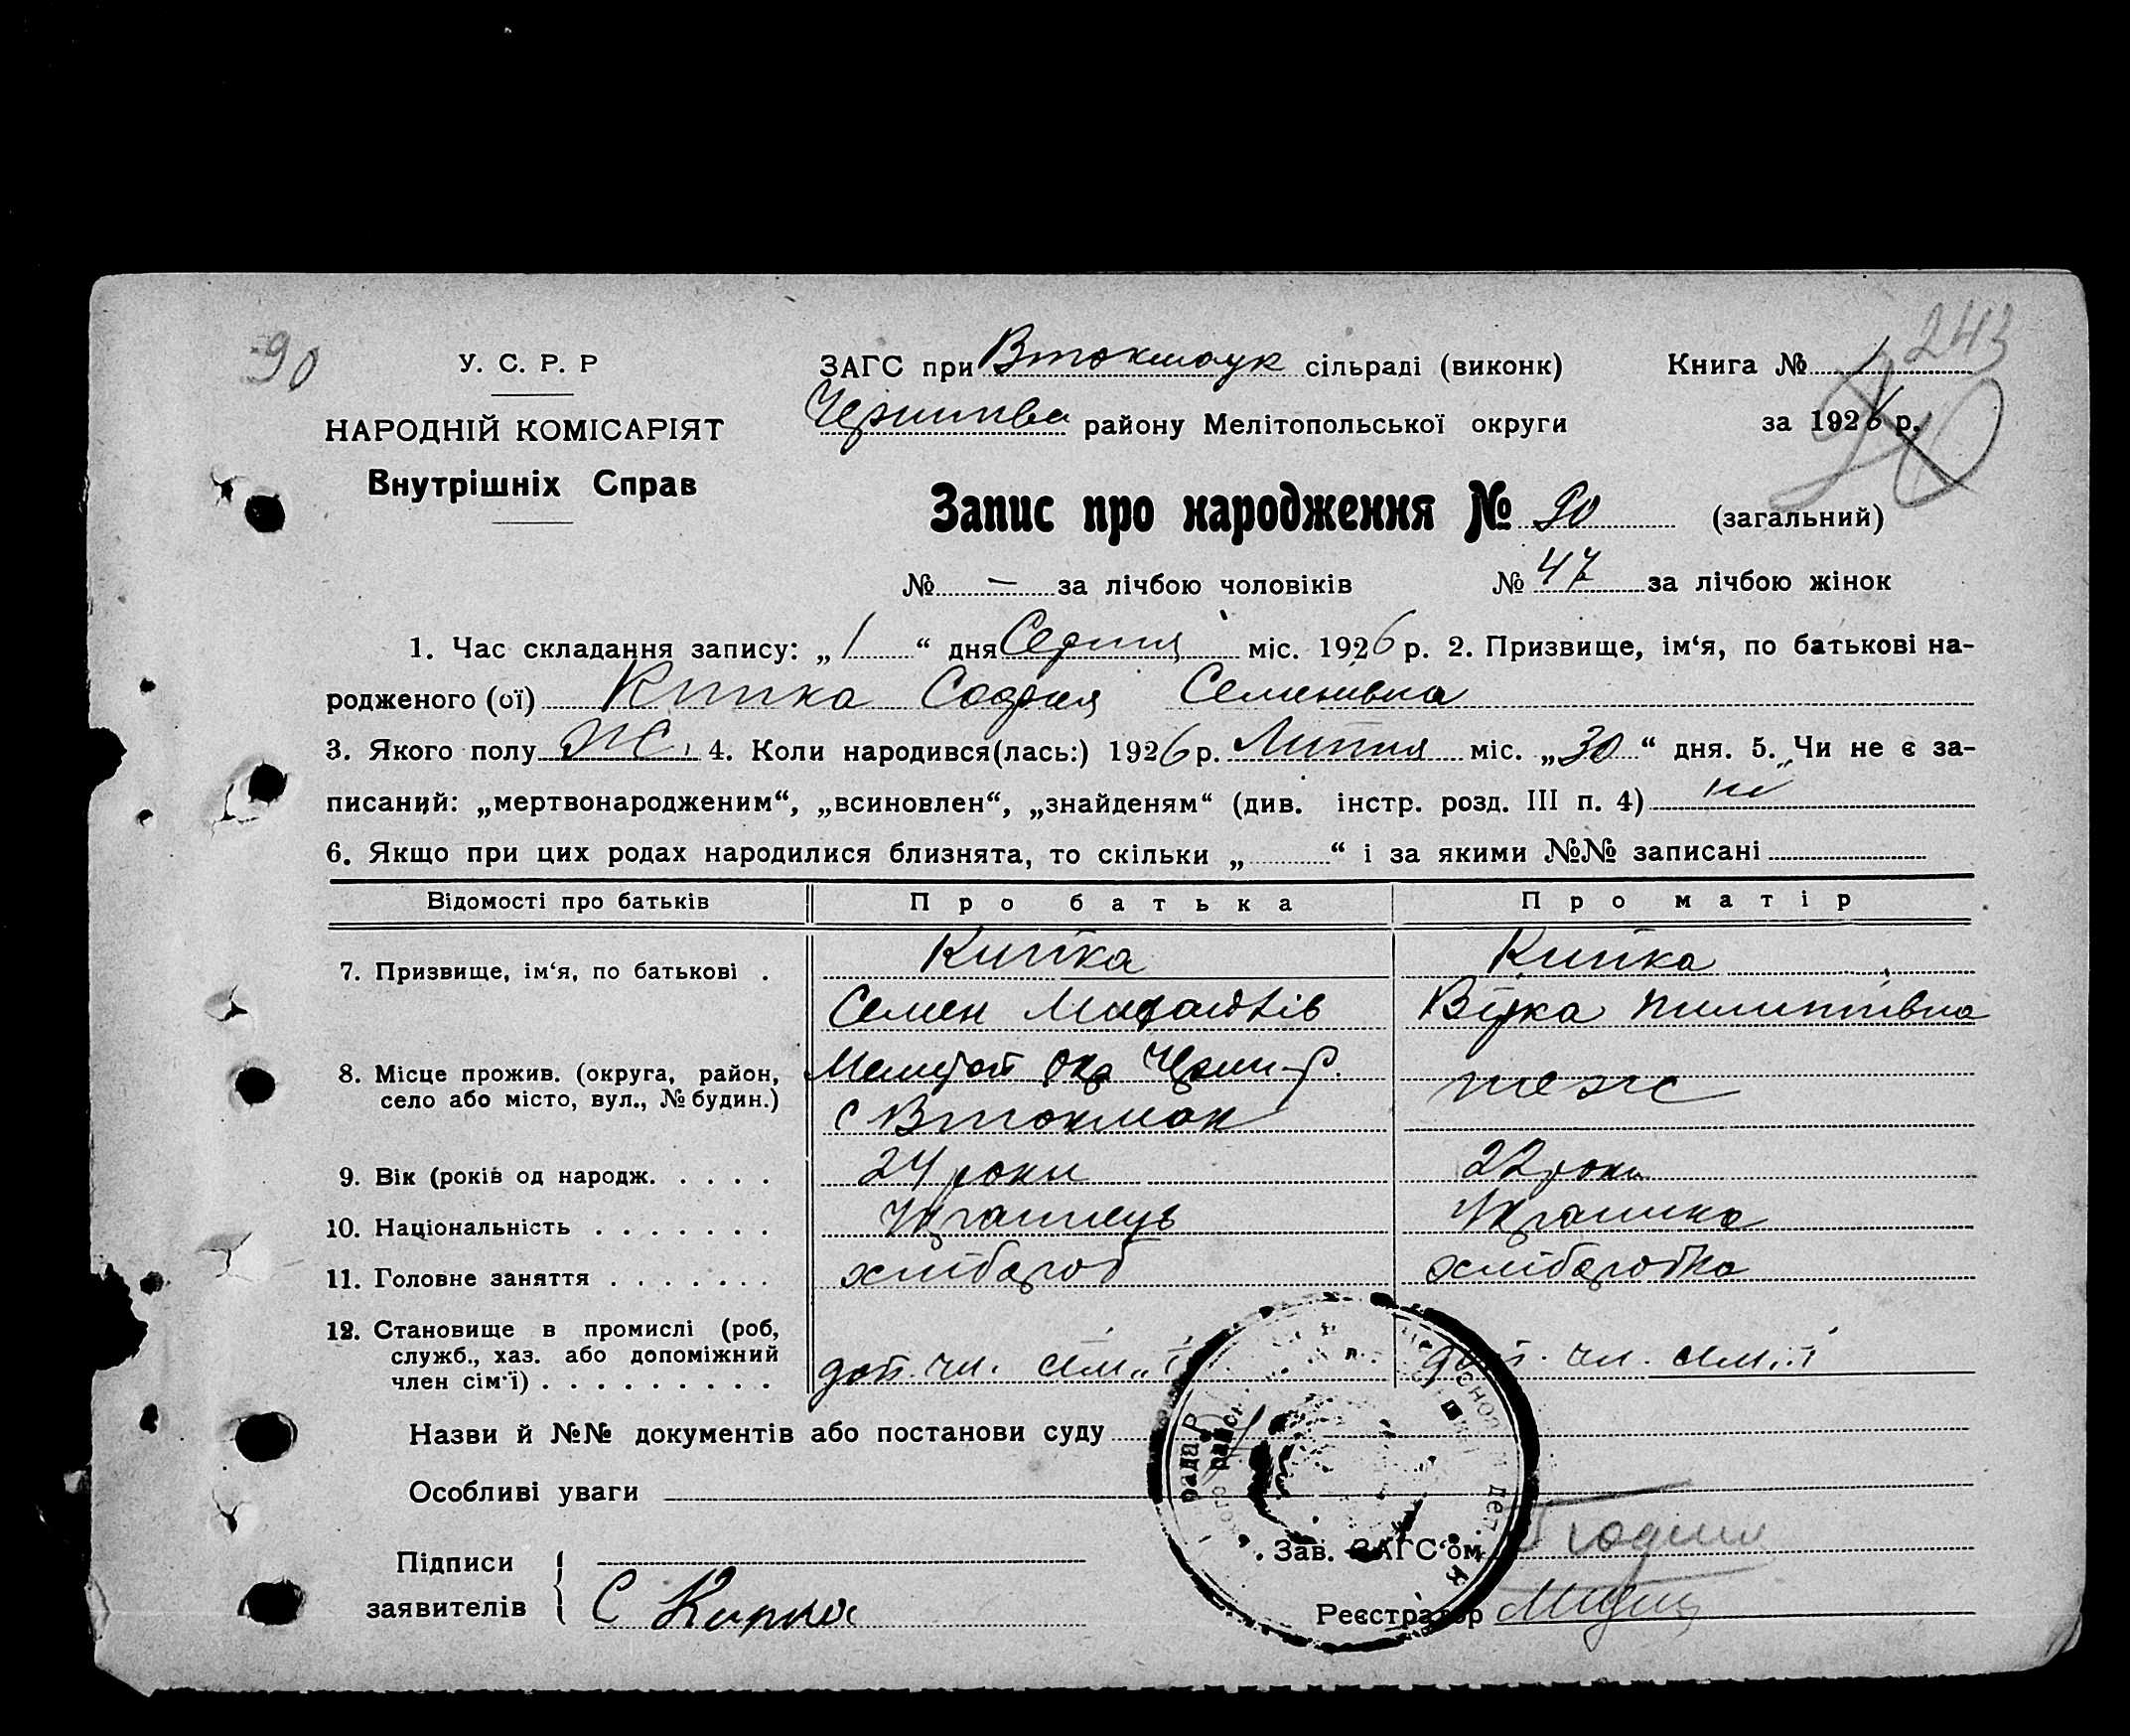 90
243
У. С. Р. Р
НАРОДНІЙ КОМІСАРІЯТ
Внутрішніх Справ
ЗАГС при Втокмаук сільраді (виконк)
району Мелітопольської округи
Книга № 1
за 1926 р.
90
Запис про народження № 90 (загальний)
№ — за лічбою чоловіків № 47 за лічбою жінок
1. Час складання запису: „1“ дня Серпня міс. 1926 р. 2. Призвище, ім‘я, по батькові на-
родженого (ої) Кипка София Семенивна
3. Якого полу Ж. 4. Коли народився(лась:) 1926 р. Липня міс. „30“ дня. 5. Чи не є за-
писаний: „мертвонародженим“, „всиновлен“, „знайденям“ (див. інстр. розд. III п. 4) ні
6. Якщо при цих родах народилися близнята, то скільки „ “ і за якими №№ записані
Відомості про батьків Про батька Про матір
7. Призвище, ім‘я, по батькові . Кипка Кипка
Семен Пилипівна
8. Місце прожив. (округа, район, село або місто, вул., № будин.) теж
с Втокмак
9. Вік (років од народж. . . . . 24 роки 22 роки
10. Національність . . . . . . . Українець Українка
11. Головне заняття . . . . . . . хлібороб хліборобка
12. Становище в промислі (роб, служб., хаз. або допоміжний член сім‘ї) . . . . . . . . . доп. чл. сім„ї доп. чл. сім„ї
Назви й №№ документів або постанови суду
Особливі уваги
Підписи
заявителів
С Кипка
Зав. ЗАГС‘ом
Реєстратор